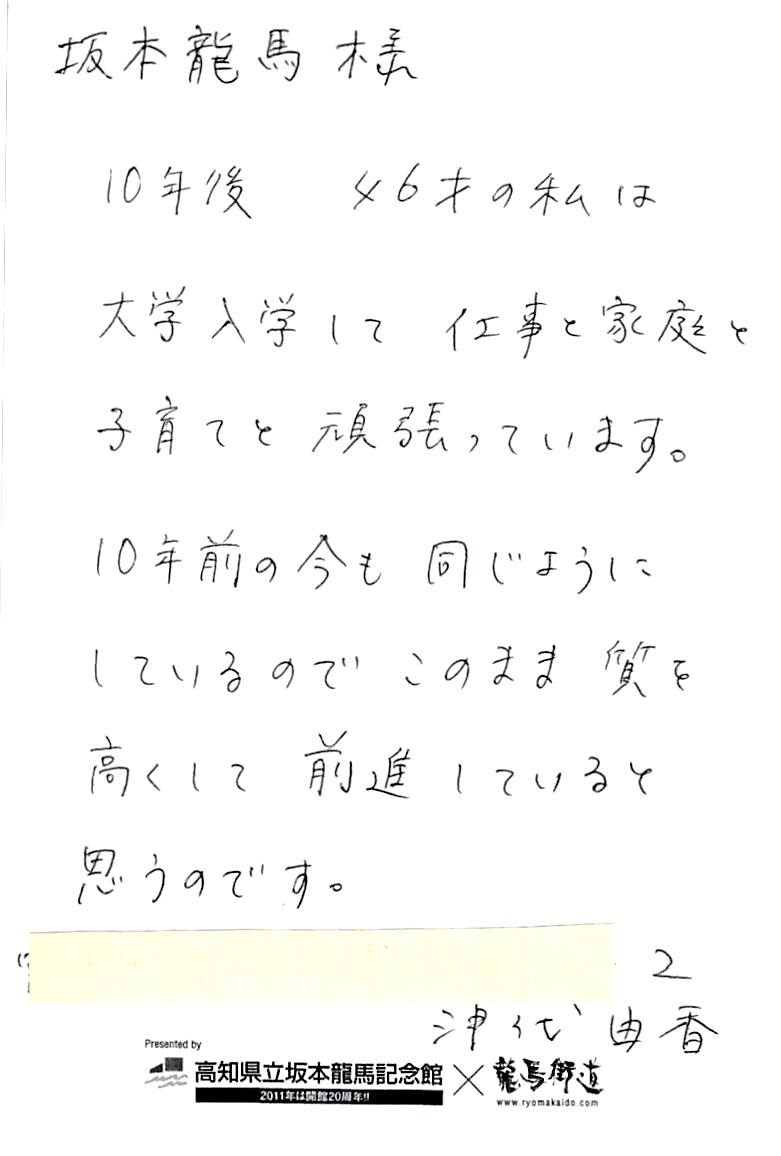 坂本龍馬 様
10年後 46才の私は
大学入学して 仕事と家庭と
子育てと 頑張っています。
10年前の今も 同じように
しているので このまま 質を
高くして 前進していると
思うのです。
2
津代 由香
Presented by
高知県立坂本龍馬記念館 × 龍馬街道
2011年は開館20周年!!
www.ryomakaido.com